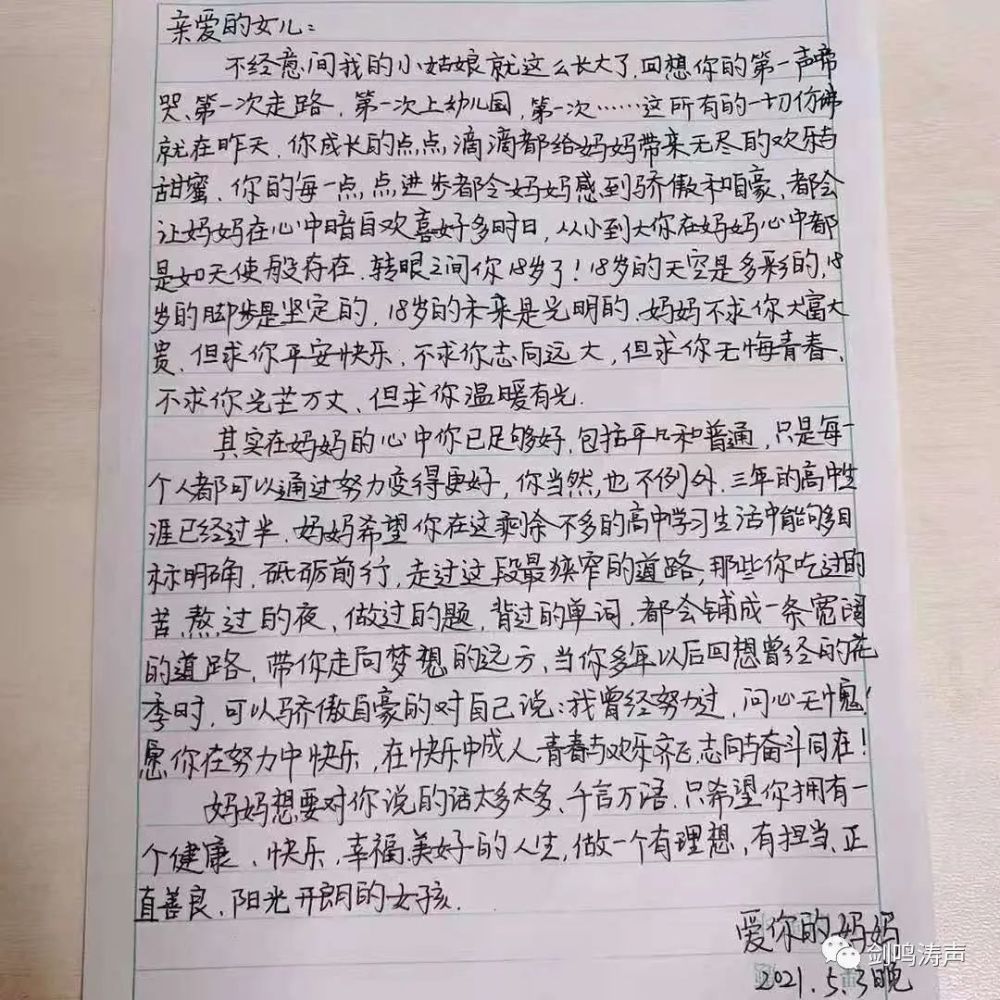 亲爱的女儿:
不经意间我的小姑娘就这么长大了,回想你的第一声啼
哭、第一次走路,第一次上幼儿园,第一次……这所有的一切仿佛
就在昨天,你成长的点点滴滴都给妈妈带来无尽的欢乐与
甜蜜、你的每一点点进步都令妈妈感到骄傲和自豪、都会
让妈妈在心中暗自欢喜好多时日,从小到大你在妈妈心中都
是如天使般存在.转眼之间你18岁了!18岁的天空是多彩的,18
岁的脚步是坚定的,18岁的未来是光明的.妈妈不求你大富大
贵、但求你平安快乐、不求你志向远大,但求你无悔青春、
不求你光芒万丈、但求你温暖有光.
其实在妈妈的心中你已足够好,包括平凡和普通,只是每一
个人都可以通过努力变得更好,你当然也不例外.三年的高中生
涯已经过半、妈妈希望你在这剩余不多的高中学习生活中能够目
标明确、砥砺前行,走过这段最狭窄的道路,那些你吃过的
苦、熬过的夜、做过的题,背过的单词、都会铺成一条宽阔
的道路、带你走向梦想的远方、当你多年以后回想曾经的花
季时,可以骄傲自豪的对自己说:我曾经努力过,问心无愧!
愿你在努力中快乐,在快乐中成人,青春与欢乐齐飞,志向与奋斗同在!
妈妈想要对你说的话太多太多、千言万语、只希望你拥有一
个健康、快乐、幸福、美好的人生,做一个有理想,有担当、正
直善良、阳光开朗的女孩.
爱你的妈妈
2021.5.3晚
剑鸣涛声